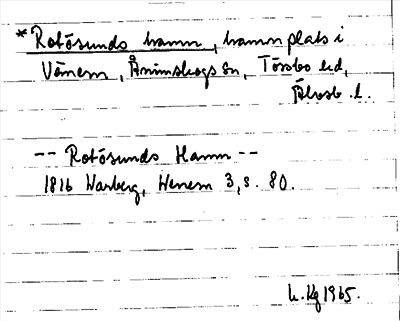 *Rotösunds hamn, hamnplats i
Vänern, Ånimskogs sn, Tössbo hd,
Älvsb. l.
-- Rotösunds Hamn --
1816 Warberg, Wenern 3, s. 80.
1965.